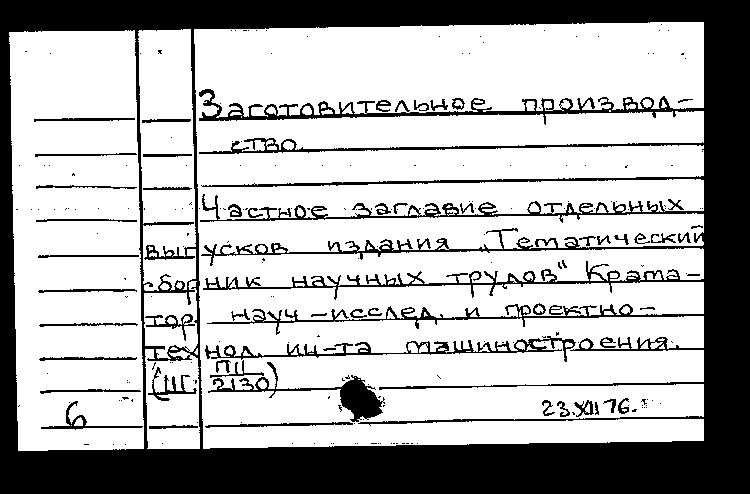 Заготовительное производ-
ство.
Частное заглавие отдельных
выпусков издания „Тематический
сборник научных трудов" Крата-
тор. науч-исслед. и проектно-
технол. ин-та машиностроения.
(Ш: П11/2130)
6 23.XII 76.